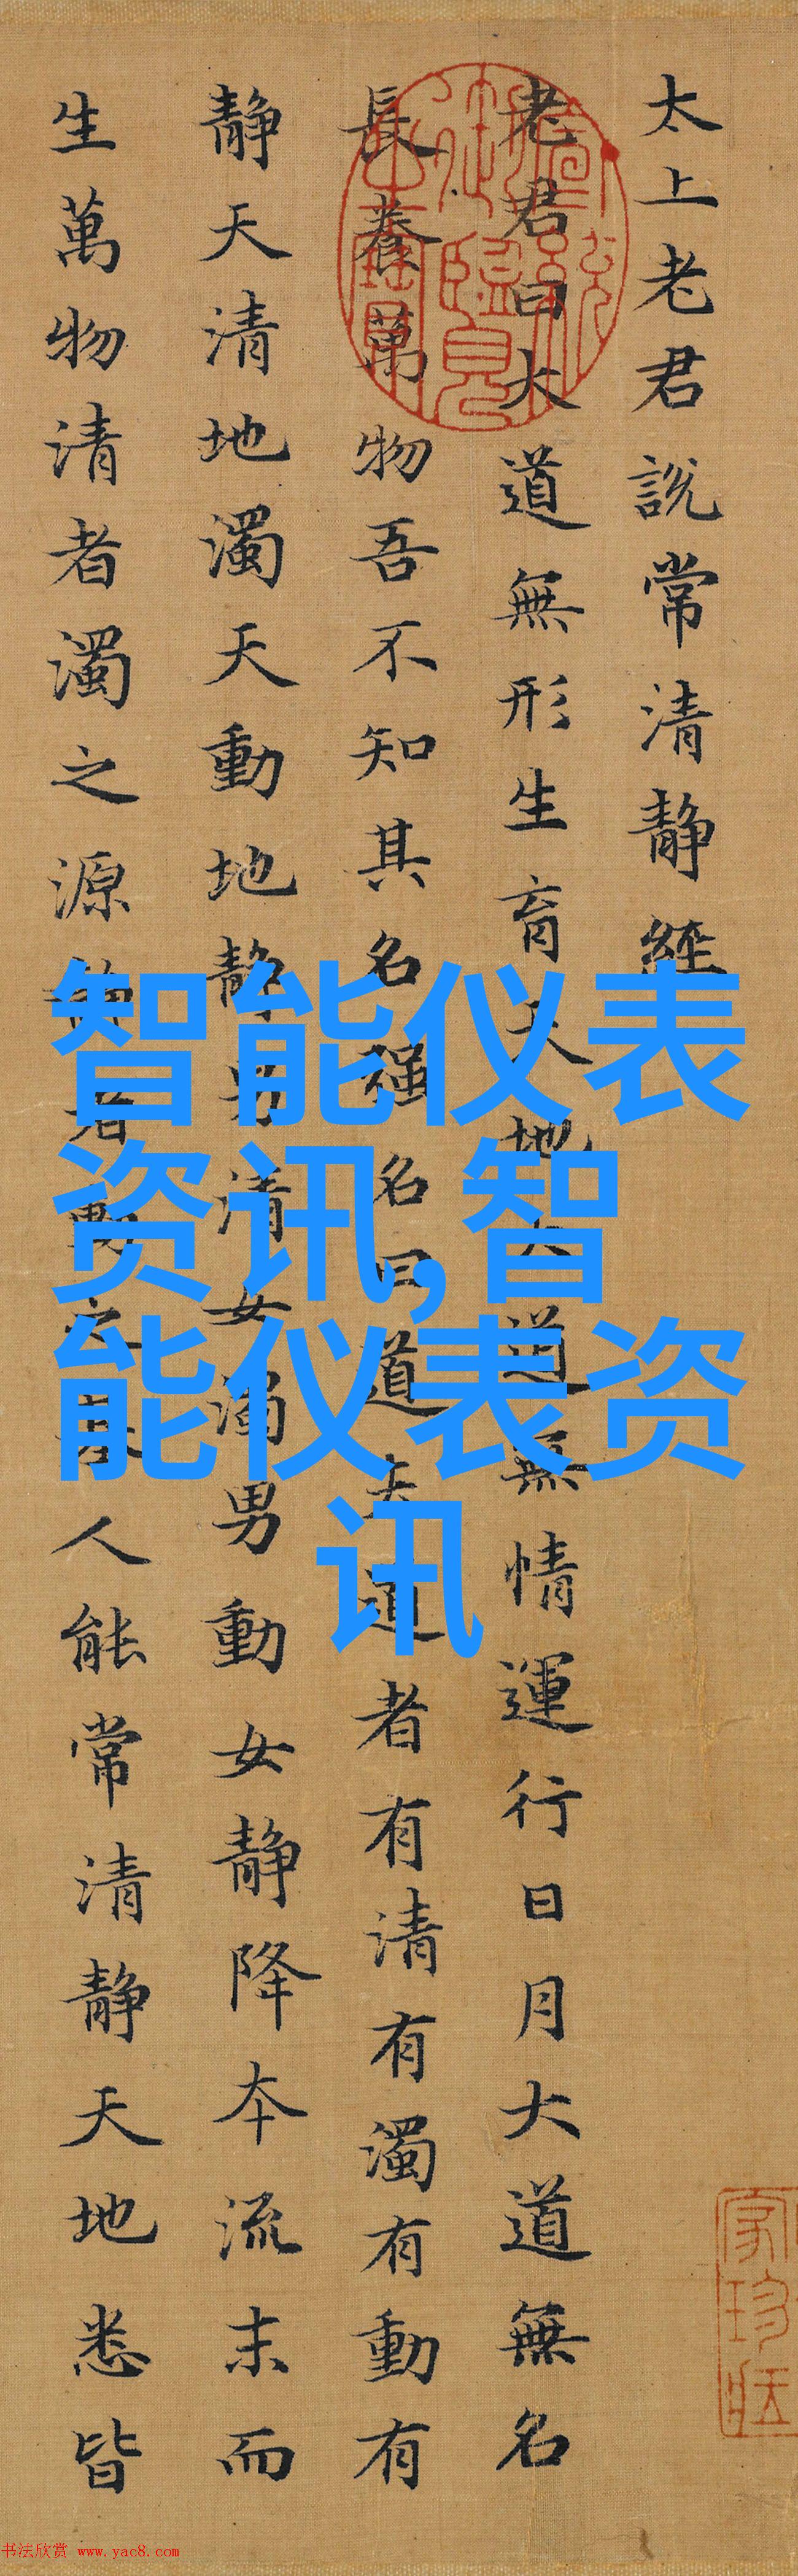 太上老君說常清靜經
老君曰大道無形生育天地大道無情運行日月大道無名
長養萬物吾不知其名强名曰道夫道者有清有濁有動有
靜天清地濁天動地靜男清女濁男動女靜降本流末而
生萬物清者濁之源靜者動之基人能常清靜天地悉皆
智能仪表
资讯,智
能仪表资
讯
书法欣赏 www.yac8.com